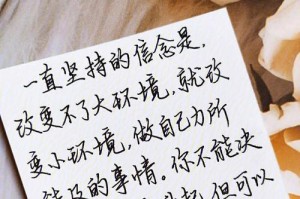 一直坚持的信念是，
改变不了大环境，就改
变小环境，做自己力所
能及的事情。你不能决
但可以